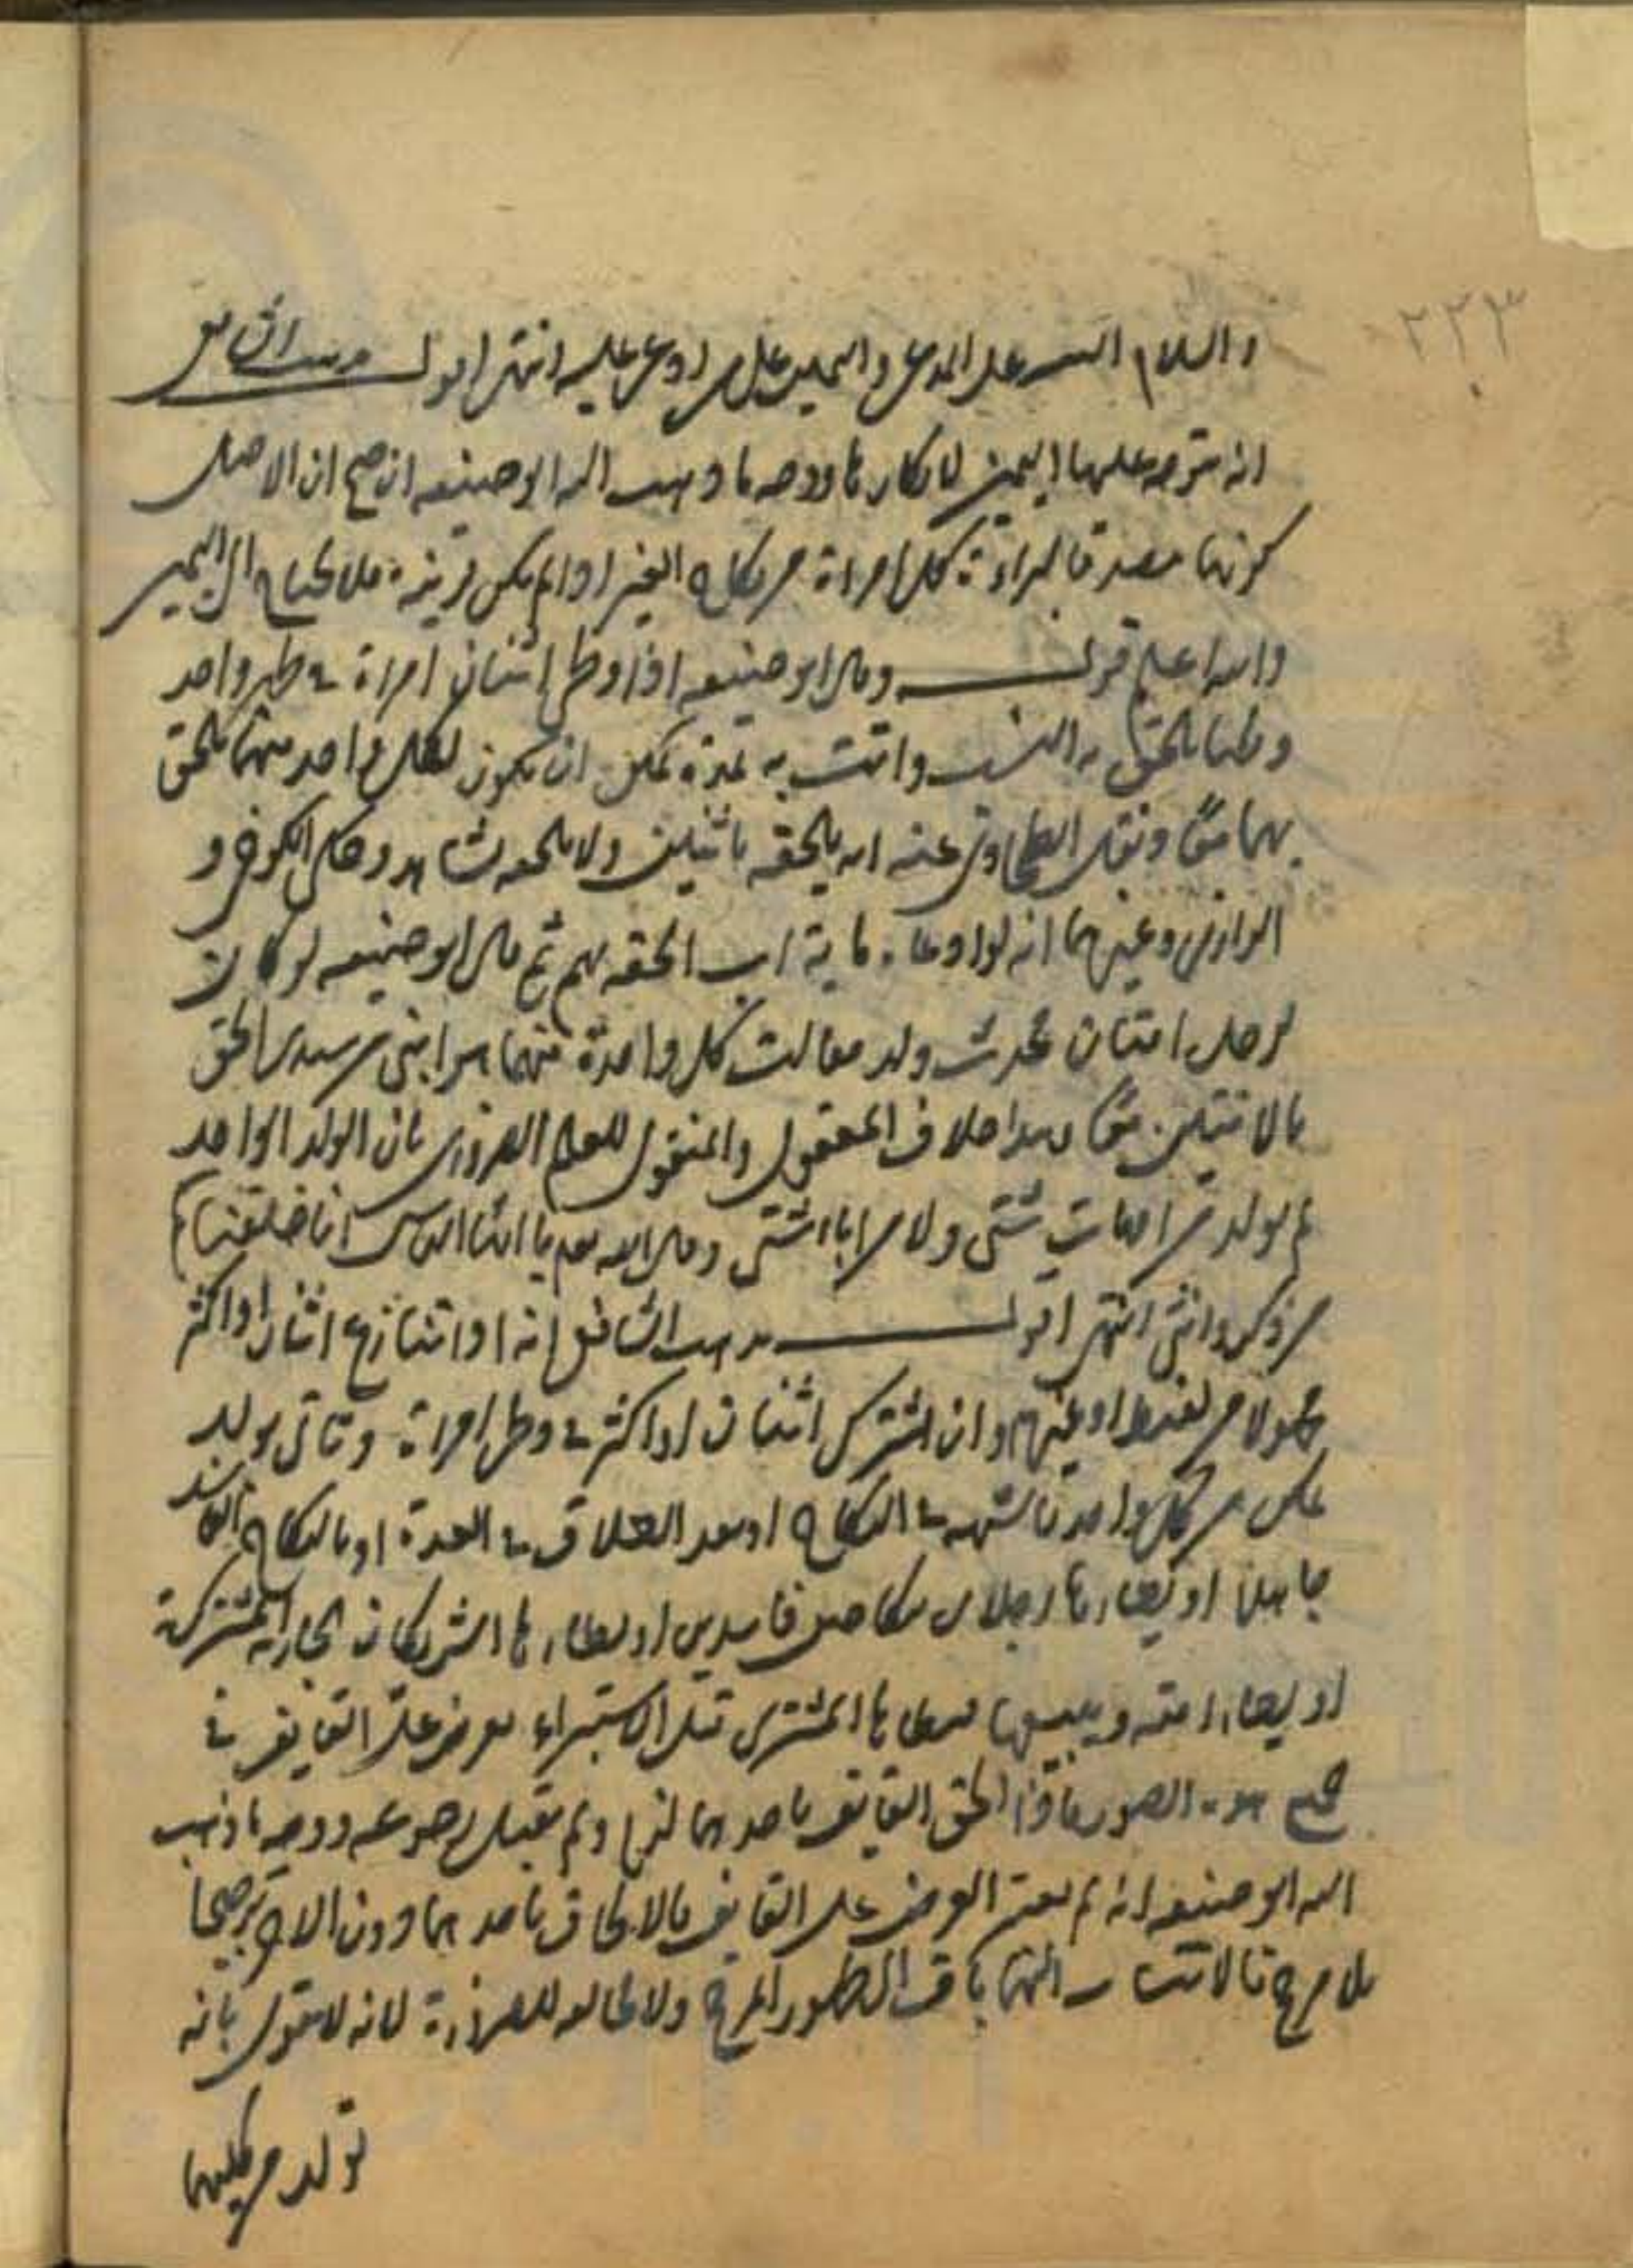 ٢٢٣
والسلام البينه على المدعى واليمين على من ادعى عليه انتهى اقول مذهب الشافعى
انه يتوجه عليها اليمين لانكارها ووجه ما ذهب اليه ابو حنيفه ان صح ان الاصل
كونها مصدقا لبراءة كل امراة من نكاح الغير اذا لم يكن قرينة فلا يحتاج الى اليمين
والله اعلم قوله وقال ابو حنيفه اذا وطى اثنان امراة فى طهر واحد
وطئا يلحق به النسب واتت به لمدة يمكن ان يكون لكل واحد منهما يلحق
بهما معًا ونقل الطحاوى عنه انه يلحقه باثنين ولا يلحقه بثالث وحكى الكرخى و
الرازى وغيرهما انه لو ادعاه ماية اب الحقه بهم ثم قال ابو حنيفه لو كان
لرجل امتان فحدث ولد فقالت كل واحدة منهما هو ابنى من سيدى الحق
بالاثنتين معًا وهذا خلاف المعقول والمنقول للعلم الضرورى بان الولد الواحد
لم يولد من امهات شتى ولا من اباء شتى وقال الله تعالى يا ايها الناس انا خلقناكم
من ذكر وانثى انتهى اقول مذهب الشافعى انه اذا تنازع اثنان او اكثر
مجهولا من لقيط او غيره وان اشترك اثنان او اكثر فى وطى امراة وتاتى بولد
يمكن من كل واحد بالشبهه فى النكاح او بعد الطلاق فى العدة او بالنكاح الفاسد
جاهلا او يطاءها رجلان بنكاحين فاسدين او يطاءها الشريكان الجارية المشتركة
او يطاء امته ويبيعها فيطاها المشترى قبل الاستبراء يعرض على القايف فى
جميع هذه الصور فاذا الحق القايف باحدهما لزم ولم يقبل رجوعه ووجه ما ذهب
اليه ابو حنيفه انه لم يعتبر العرض على القايف فالالحاق باحدهما دون الاخر ترجيحا
بلا مرجح فالانتساب اليهما باق الى ظهور المرجح ولا مخالفه للضرورة لانه لا يقول بانه
تولد من كليهما